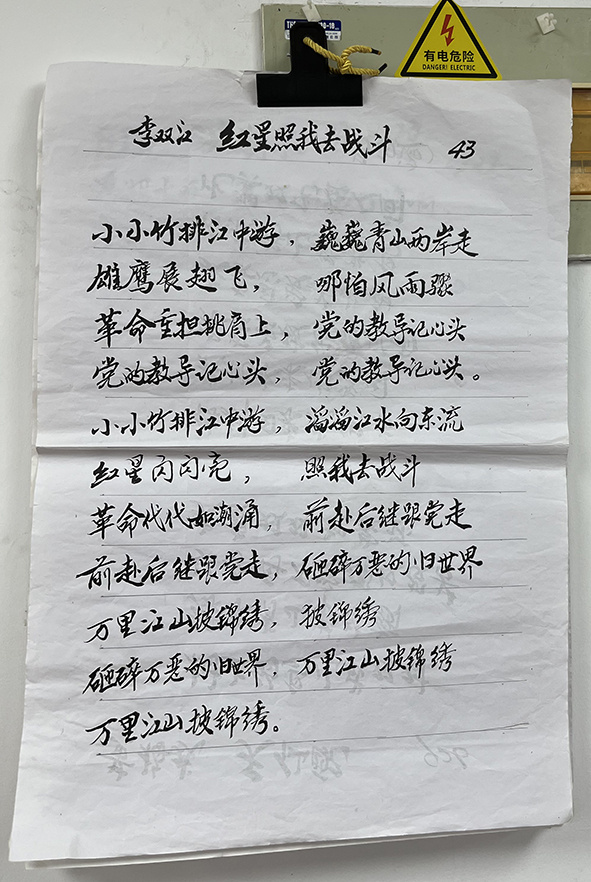 有电危险
DANGER! ELECTRIC
李双江 红星照我去战斗 43
小小竹排江中游，巍巍青山两岸走
雄鹰展翅飞，哪怕风雨骤
革命重担挑肩上，党的教导记心头
党的教导记心头，党的教导记心头。
小小竹排江中游，滔滔江水向东流
红星闪闪亮，照我去战斗
革命代代如潮涌，前赴后继跟党走
前赴后继跟党走，砸碎万恶的旧世界
万里江山披锦绣，披锦绣
砸碎万恶的旧世界，万里江山披锦绣
万里江山披锦绣。